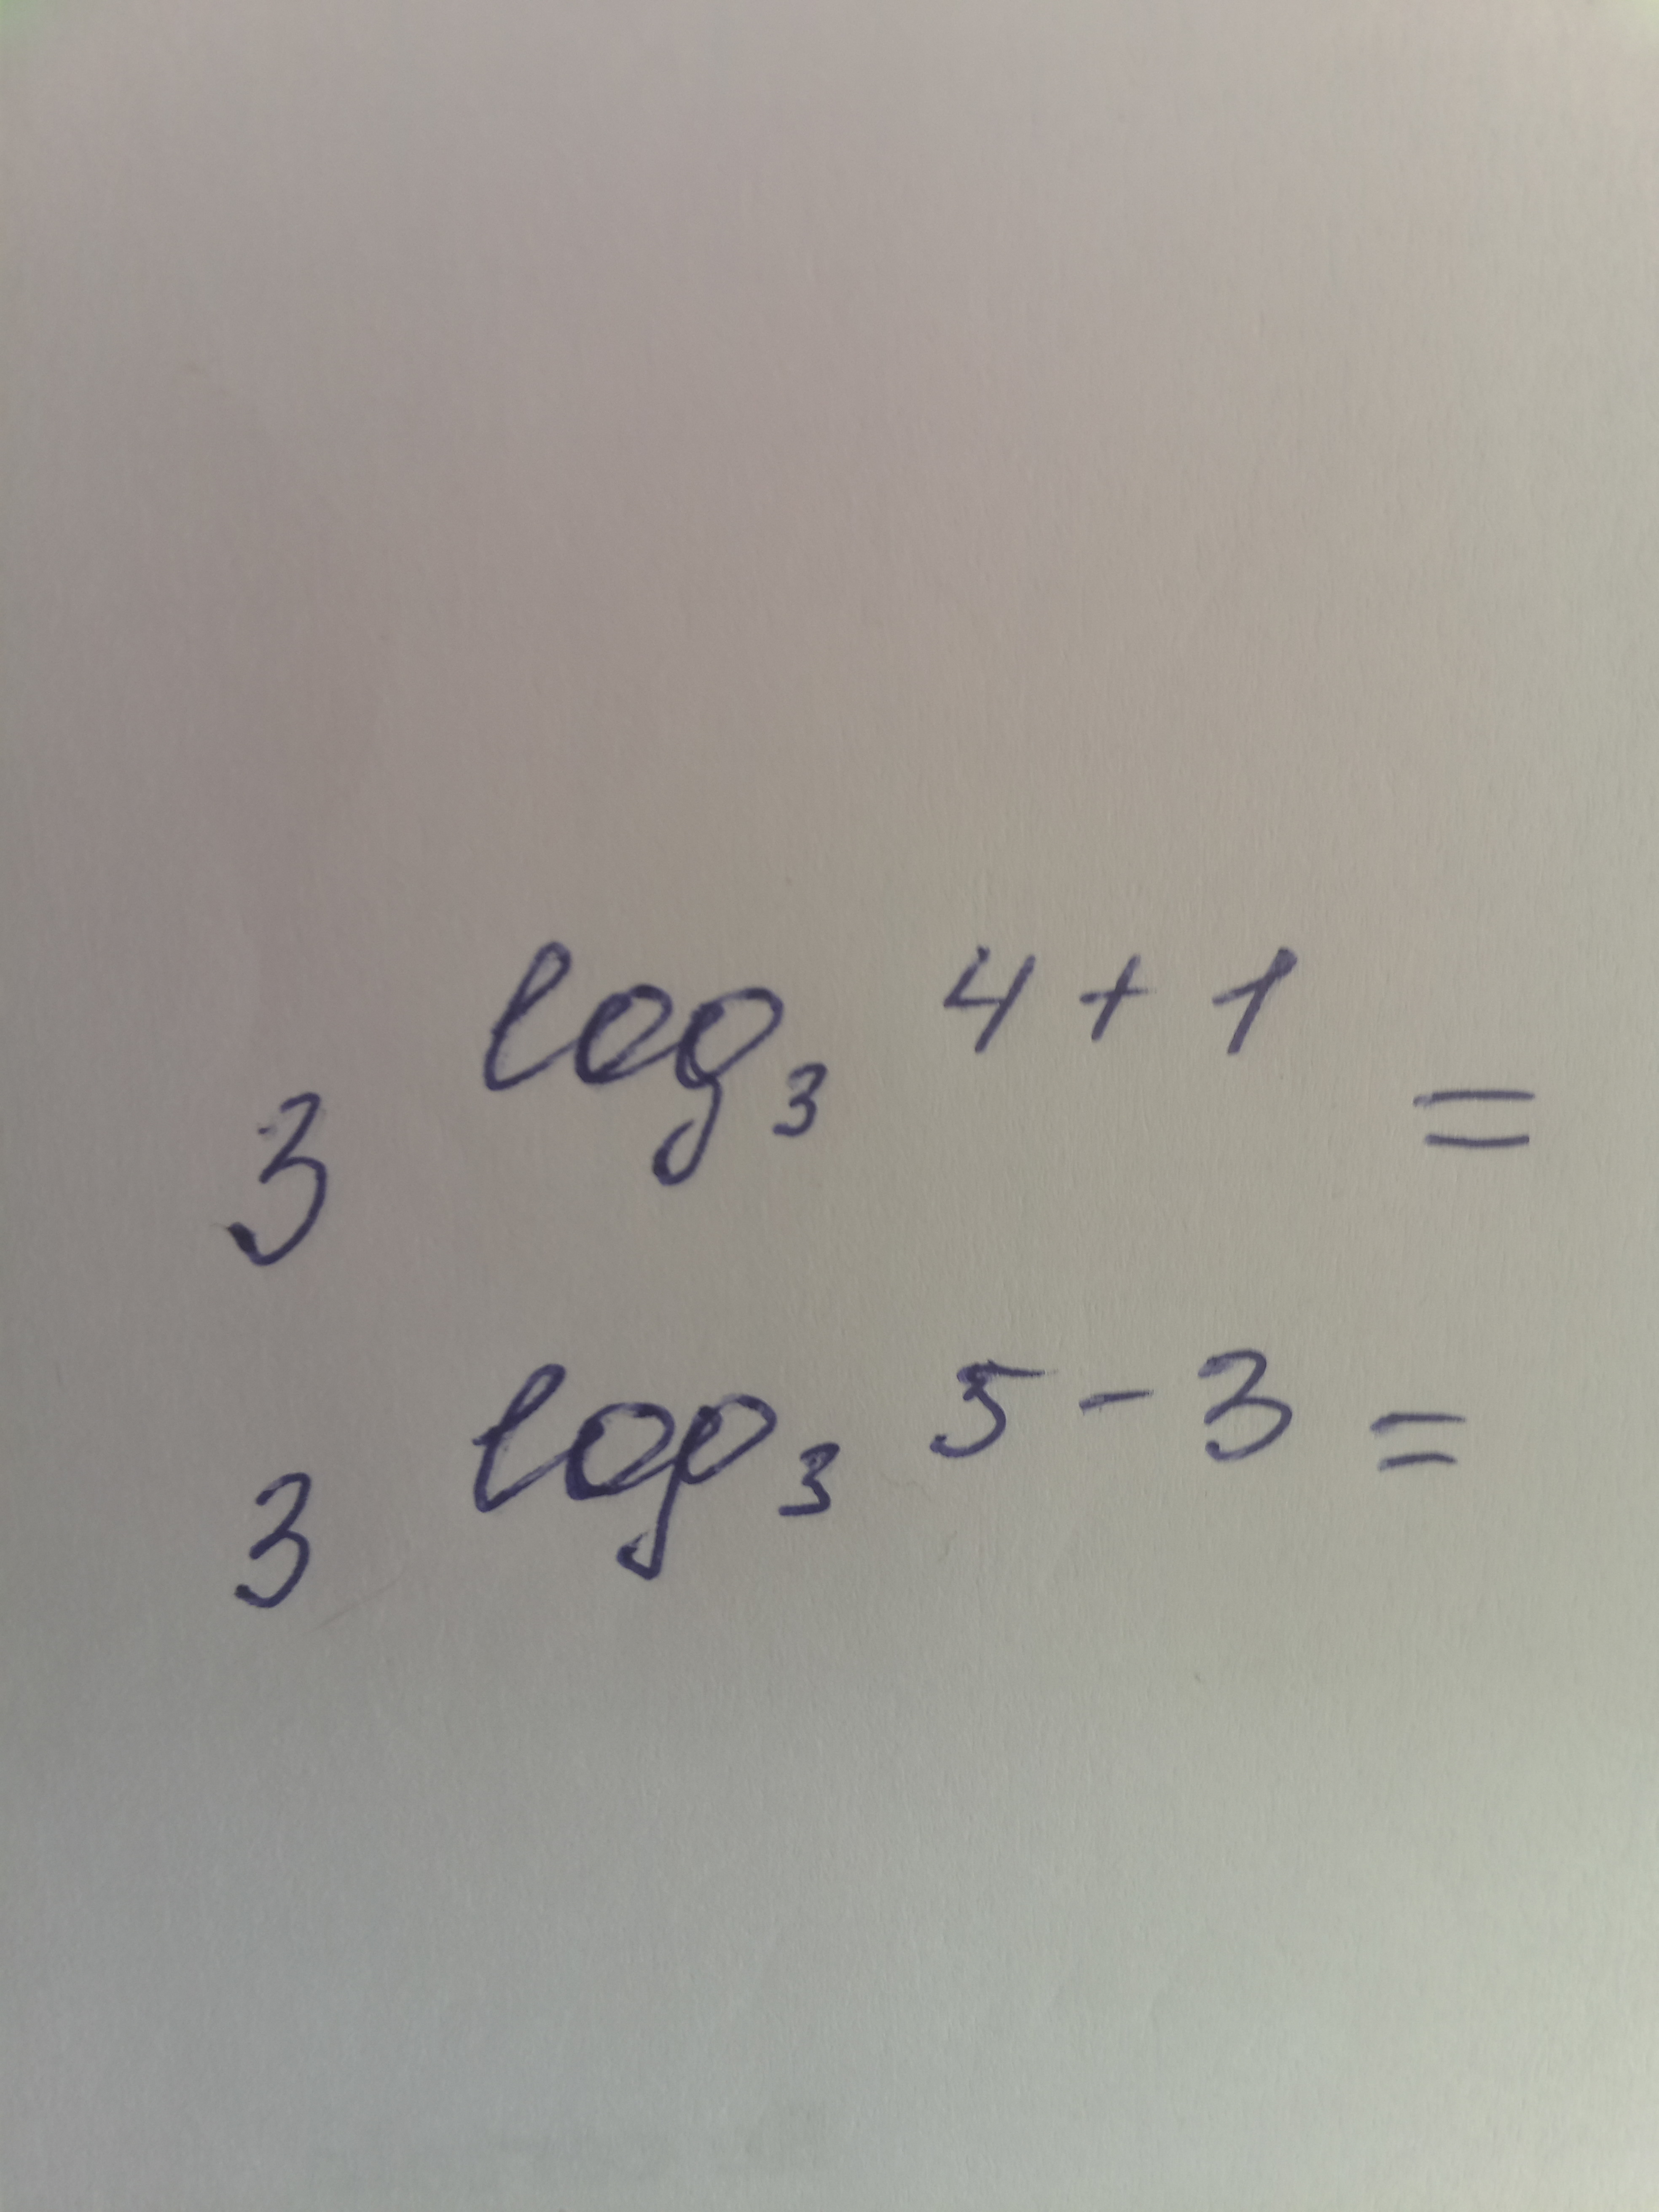 3^{log_3 4+1} =
3^{log_3 5-3} =